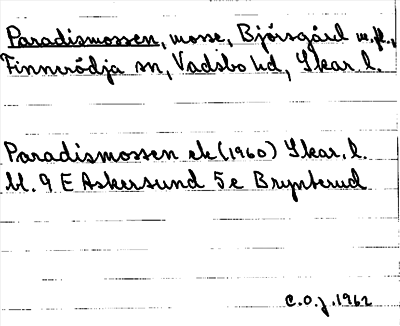 Paradismossen, mosse, Björsgård m.fl.,
Finnerödja sn, Vadsbo hd, Skar. l.
Paradismossen ek (1960) Skar. l.
bl. 9 E Askersund 5e Brynterud
C.O.J. 1962